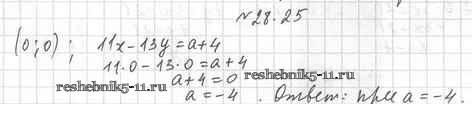 №28.25
(0;0); 11x-13y=a+4
11·0-13·0=a+4
a+4=0
a=-4. Ответ: при a=-4.
reshebnik5-11.ru
reshebnik5-11.ru